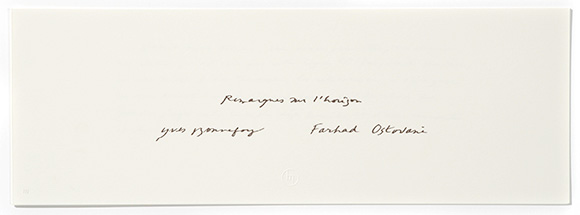 Remarques sur l'horizon
yves Bonnefoy Farhad Ostovani